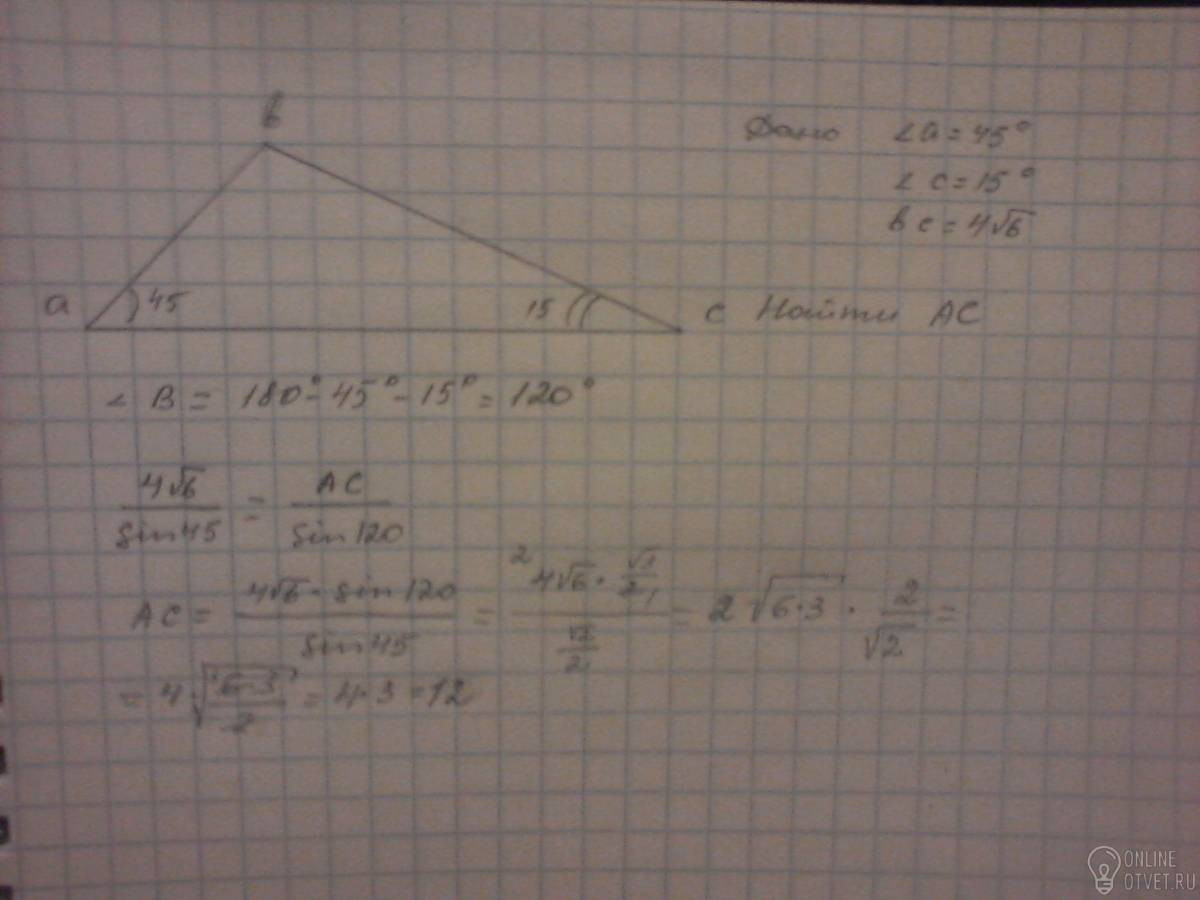 b
Дано ∠a = 45°
∠ c = 15°
bc = 4√6
a 45 15 c Найти AC
∠ B = 180° - 45° - 15° = 120°
4√6/sin45 = AC/sin120
AC = (4√6 · sin120)/sin45 = (4√6 · √3/2)/(√2/2) = 2√(6·3) · 2/√2 =
= 4√((6·3)/2) = 4·3 = 12
ONLINE
OTVET.RU